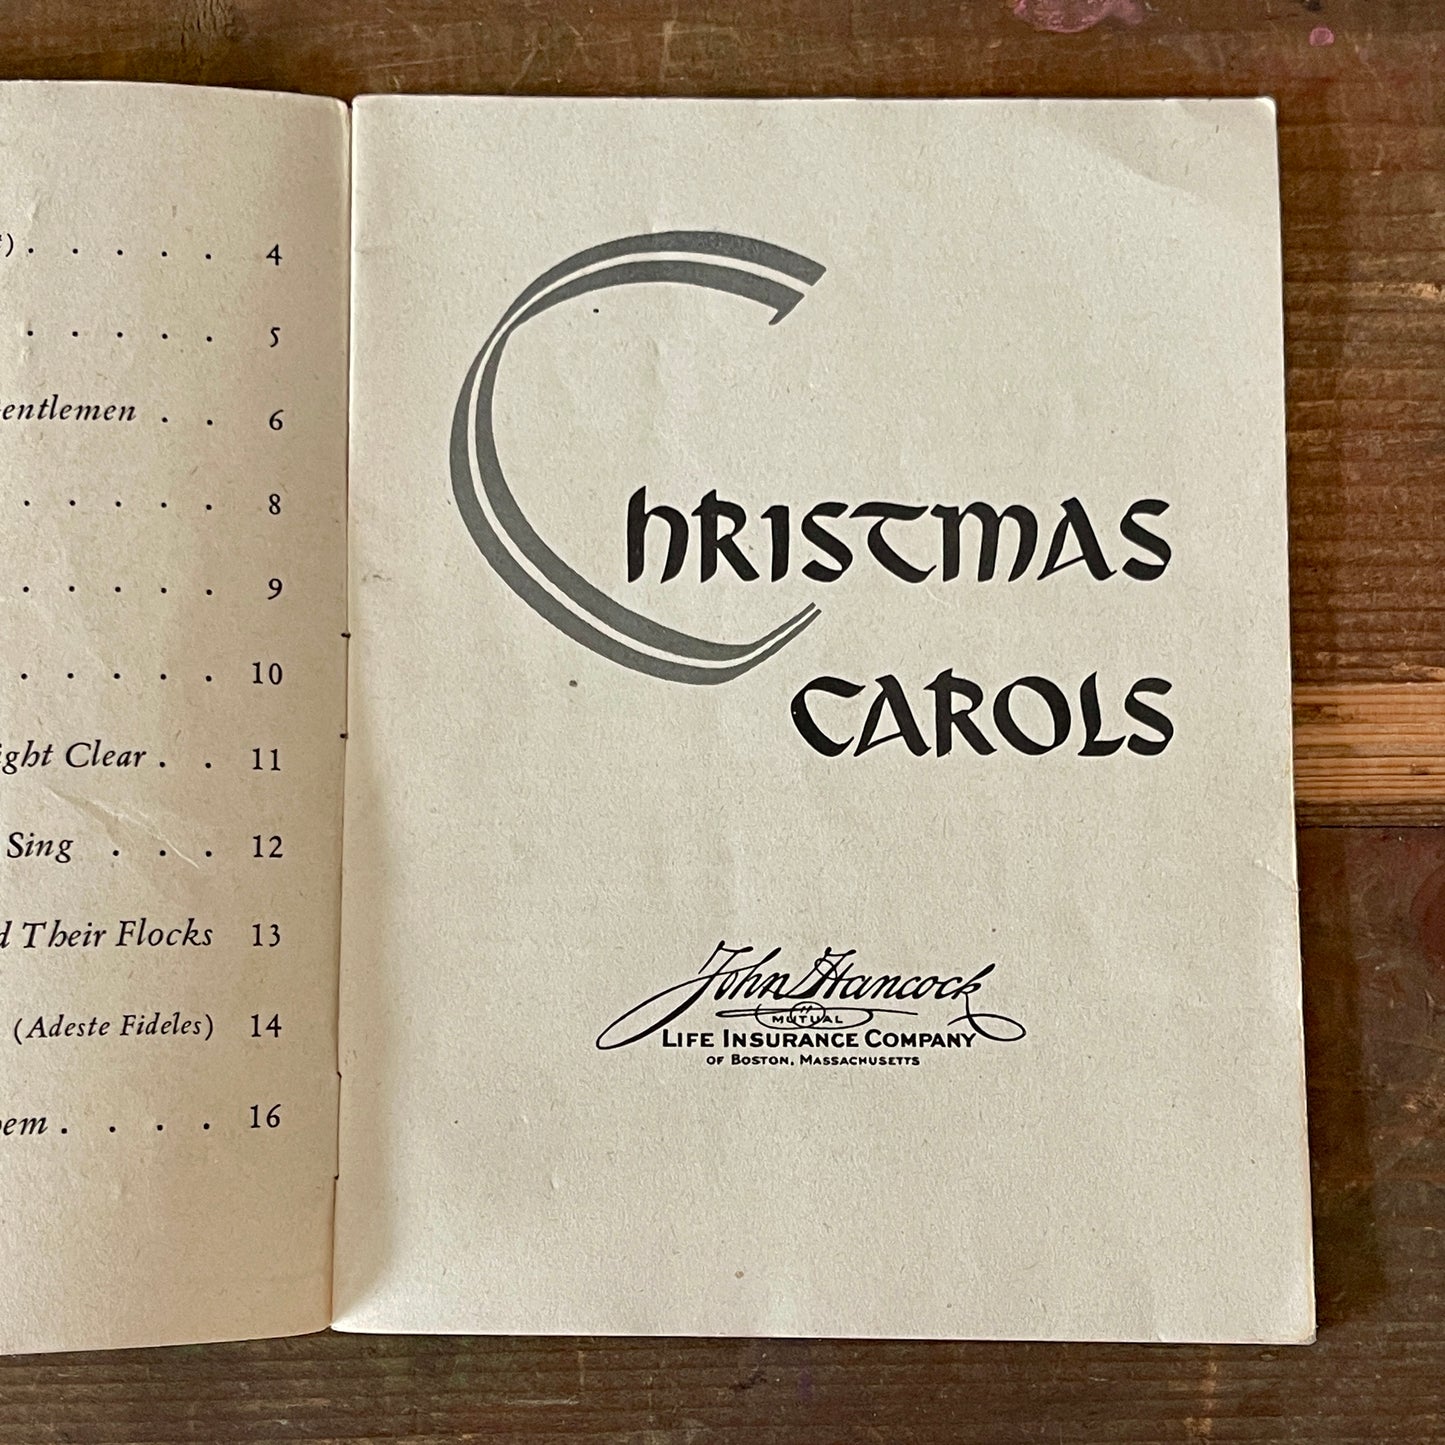 . . . . . 4
. . . . . 5
entlemen . . 6
. . . . . 8
. . . . . 9
. . . . . 10
ight Clear . . 11
Sing . . . 12
d Their Flocks 13
(Adeste Fideles) 14
oem . . . . 16
CHRISTMAS
CAROLS
John Hancock
MUTUAL
LIFE INSURANCE COMPANY
OF BOSTON, MASSACHUSETTS